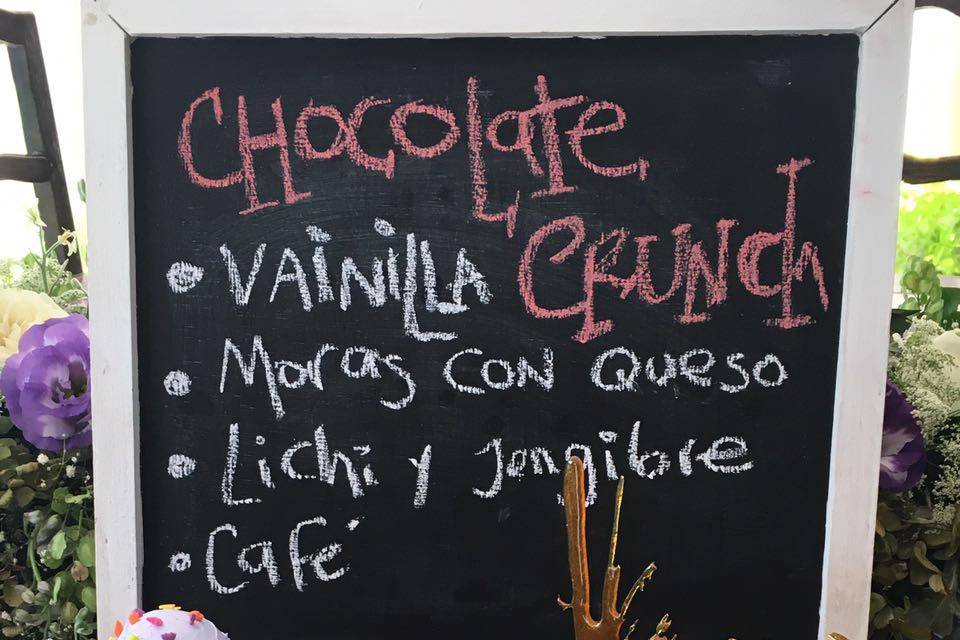 CHocoLate
CRUNCh
• VAiNiLLA
• Moras con Queso
• Lichi y Jengibre
• Café